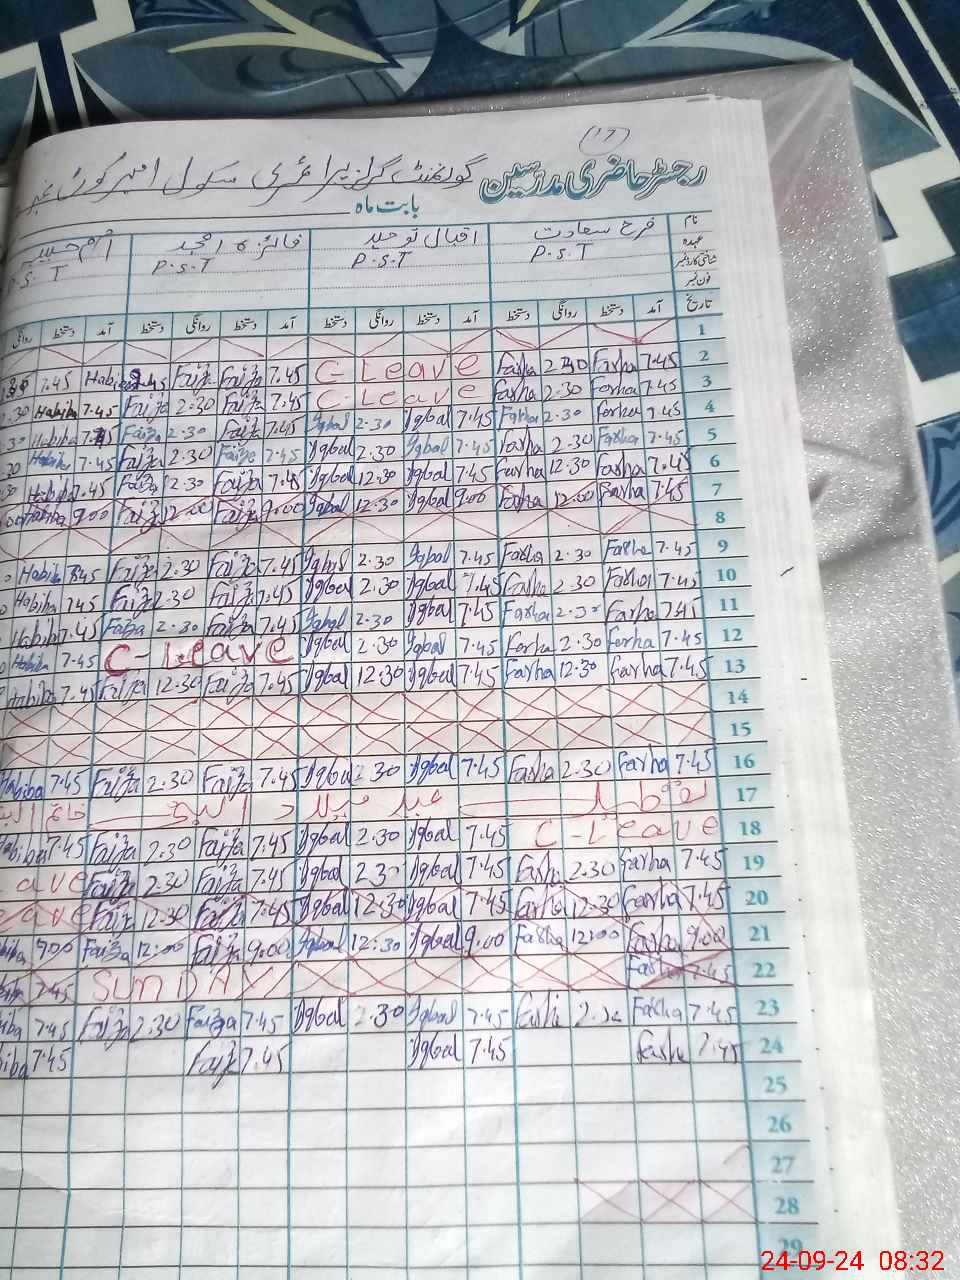 (17)
رجسٹر حاضری مدرسین گورنمنٹ گرلز پرائمری سکول امیر کوٹ
بابت ماہ
نام فرح سعادت اقبال توحید فائزہ امجد ام حبیبہ
عہدہ P.S.T P.S.T P.S.T P.S.T
شناختی کارڈ نمبر
فون نمبر
تاریخ آمد دستخط روانگی دستخط آمد دستخط روانگی دستخط آمد دستخط روانگی دستخط آمد دستخط روانگی
1
7.45 Habiba Faiza Faiza 7.45 C-Leave Farha 2.30 Farha 7.45 2
2.30 Habiba 7.45 Faiza 2.30 Faiza 7.45 C-Leave Farha 2.30 Farha 7.45 3
Habiba Faiza 2.30 Faiza 7.45 Iqbal 2.30 Iqbal 7.45 Farha 2.30 Farha 7.45 4
Habiba 7.45 Faiza 2.30 Faiza 7.45 Iqbal 2.30 Iqbal 7.45 Farha 2.30 Farha 7.45 5
Habiba 7.45 Faiza 2.30 Faiza 7.45 Iqbal 12.30 Iqbal 7.45 Farha 12.30 Farha 7.45 6
Habiba 9.00 Faiza 12.00 Faiza 9.00 Iqbal 12.30 Iqbal 9.00 Farha 12.00 Farha 7.45 7
8
Habiba Faiza 2.30 Faiza 7.45 Iqbal 2.30 Iqbal 7.45 Farha 2.30 Farha 7.45 9
Habiba 7.45 Faiza 2.30 Faiza 7.45 Iqbal 2.30 Iqbal 7.45 Farha 2.30 Farha 7.45 10
Habiba 7.45 Faiza 2.30 Faiza 7.45 Iqbal 2.30 Iqbal 7.45 Farha 2.30 Farha 7.45 11
Habiba 7.45 C-Leave Iqbal 2.30 Iqbal 7.45 Farha 2.30 Farha 7.45 12
Habiba 7.45 Faiza 12.30 Faiza 7.45 Iqbal 12.30 Iqbal 7.45 Farha 12.30 Farha 7.45 13
14
15
Habiba 7.45 Faiza 2.30 Faiza 7.45 Iqbal 2.30 Iqbal 7.45 Farha 2.30 Farha 7.45 16
عید میلاد النبی 17
Habiba 7.45 Faiza 2.30 Faiza 7.45 Iqbal 2.30 Iqbal 7.45 C-Leave 18
eave Faiza 2.30 Faiza 7.45 Iqbal 2.30 Iqbal 7.45 Farha 2.30 Farha 7.45 19
eave Faiza 12.30 Faiza 7.45 Iqbal 12.30 Iqbal 7.45 Farha 12.30 Farha 7.45 20
iba 9.00 Faiza 12:00 Faiza 9.00 Iqbal 12:30 Iqbal 9.00 Farha 12:00 Farha 9.00 21
7.45 SUNDAY Farha 7.45 22
iba 7.45 Faiza 2.30 Faiza 7.45 Iqbal 2.30 Iqbal 7.45 Farha Farha 7.45 23
iba 7.45 Faiza 7.45 Iqbal 7.45 Farha 7.45 24
25
26
27
28
29
24-09-24 08:32